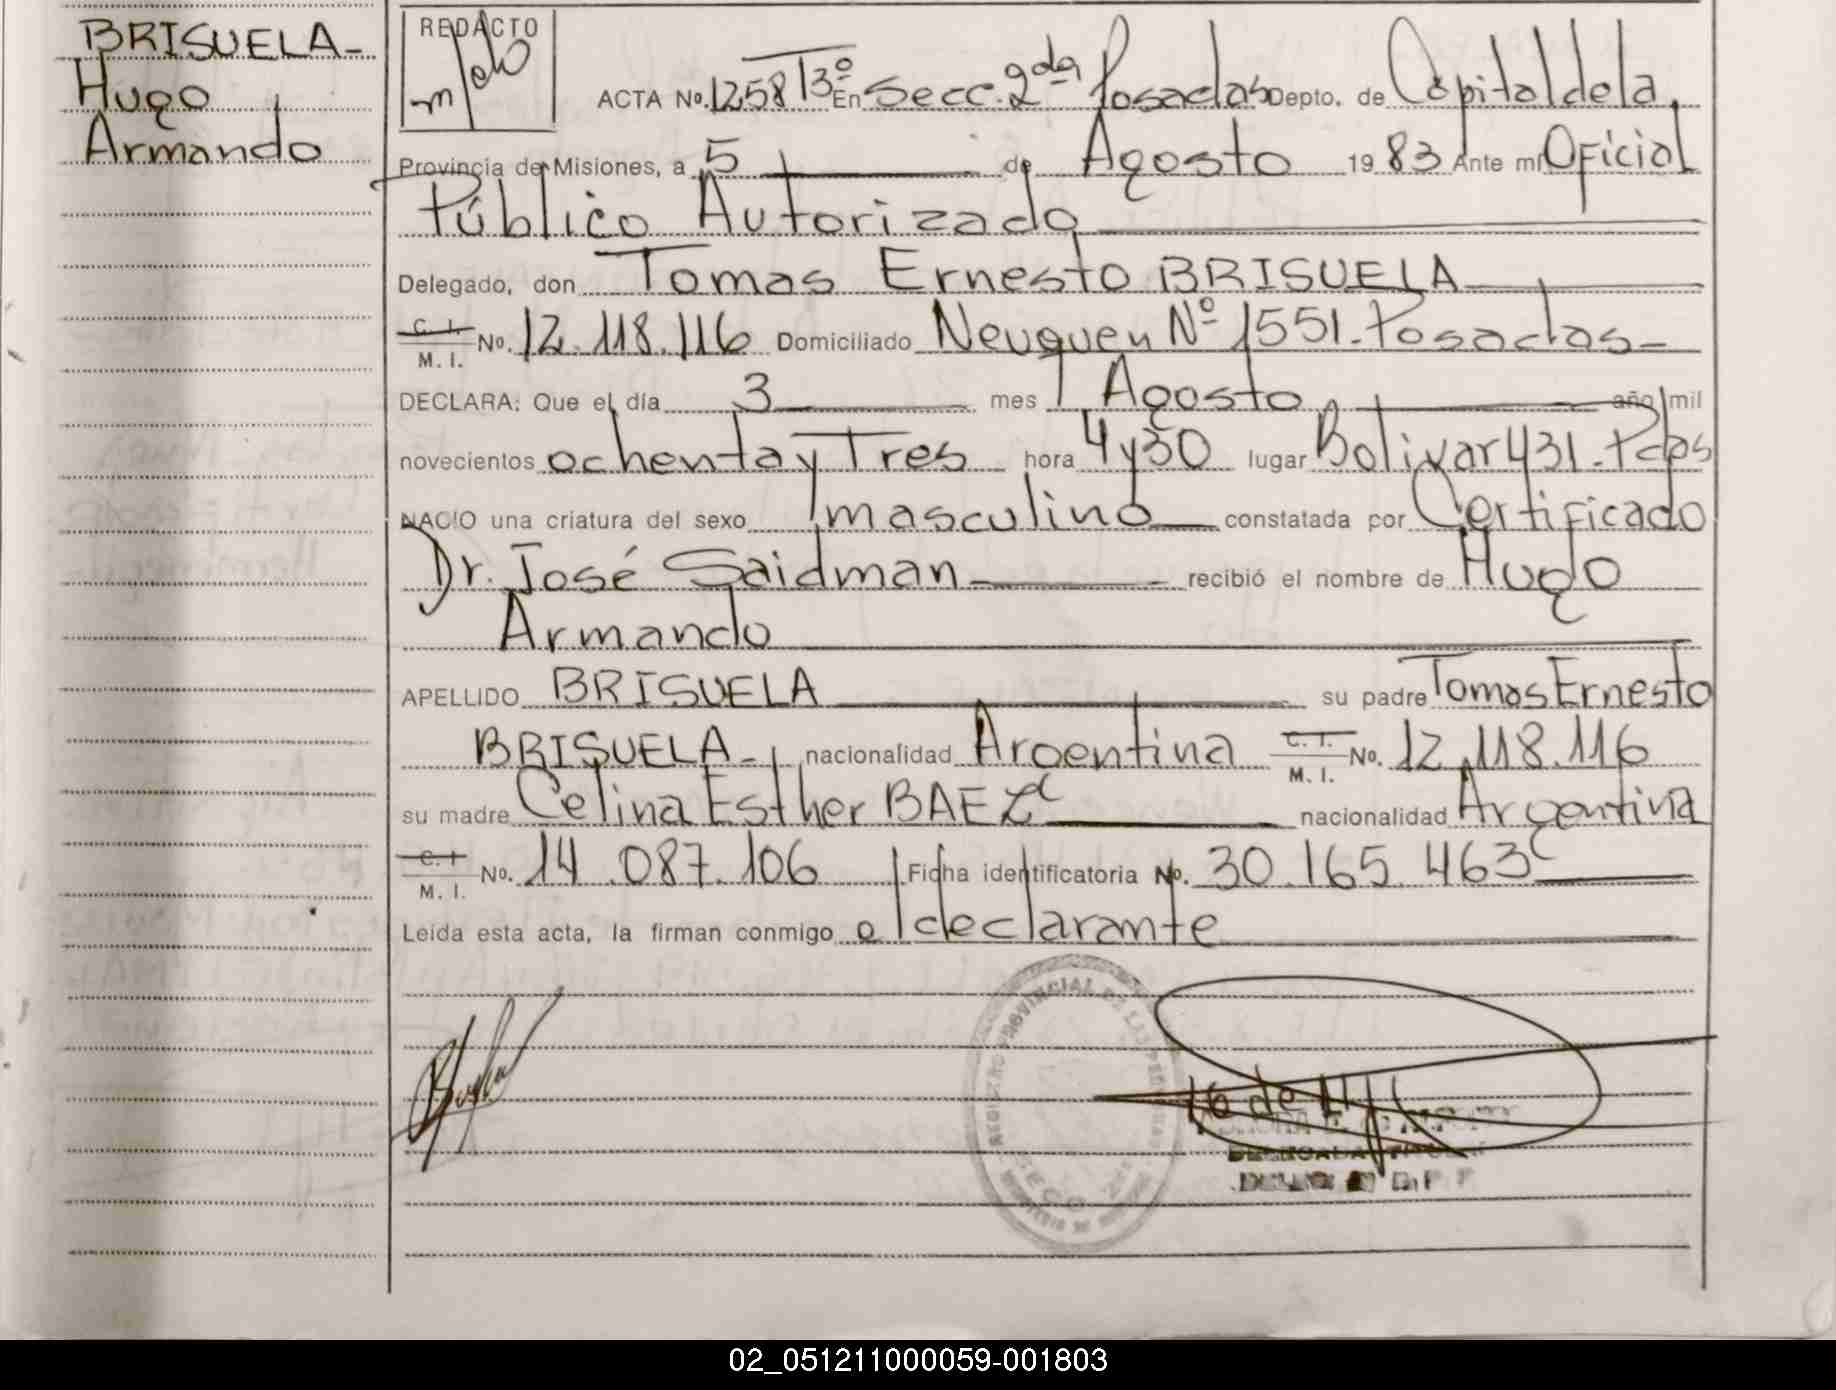 BRISUELA-
Hugo
Armando
REDACTO
ACTA No. 1258 Tº 3º En Secc. 2da Posadas Depto. de Capital de la
Provincia de Misiones, a 5 de Agosto 1983 Ante mí Oficial
Público Autorizado
Delegado, don Tomas Ernesto BRISUELA
C. I.
M. I. No. 12.118.116 Domiciliado Neuquen Nº 1551-Posadas-
DECLARA: Que el día 3 mes Agosto año mil
novecientos ochenta y Tres hora 4 y 30 lugar Bolivar 431-Pdas
NACIO una criatura del sexo masculino constatada por Certificado
Dr. José Saidman recibió el nombre de Hugo
Armando
APELLIDO BRISUELA su padre Tomas Ernesto
BRISUELA- nacionalidad Argentina C. I.
M. I. No. 12.118.116
su madre Celina Esther BAEZ nacionalidad Argentina
C. I.
M. I. No. 14.087.106 Ficha identificatoria No. 30.165.463
Leída esta acta, la firman conmigo el declarante
REGISTRO PROVINCIAL DE LAS PERSONAS
02_051211000059-001803